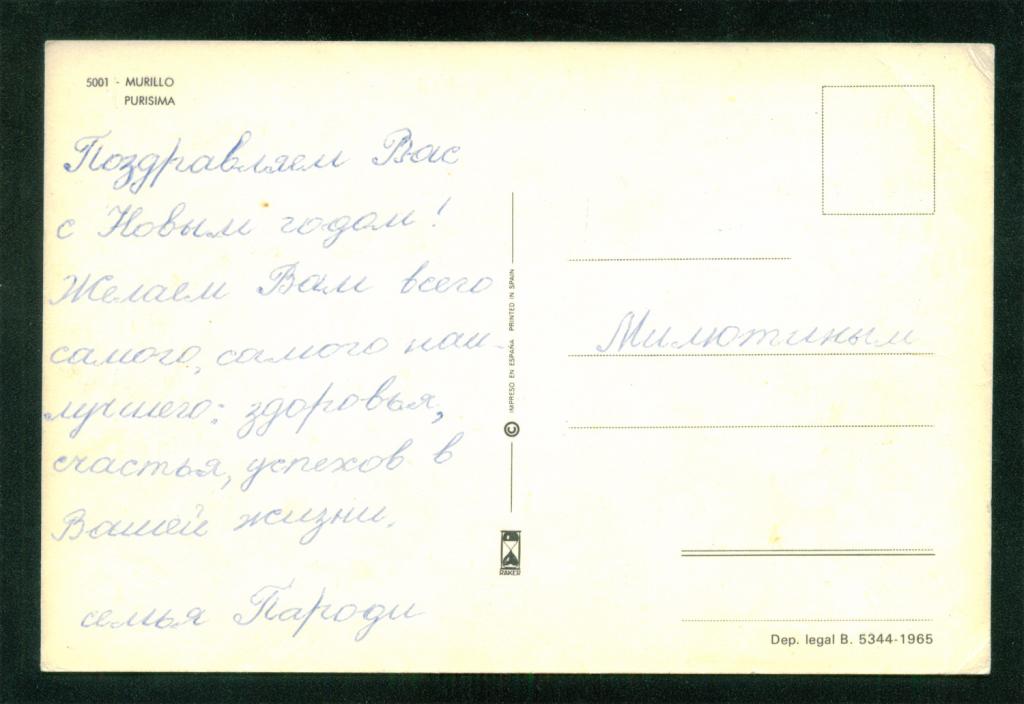 5001 - MURILLO
PURISIMA
Поздравляем Вас
с Новым годом!
Желаем Вам всего
самого, самого наи-
лучшего: здоровья,
счастья, успехов в
Вашей жизни.
семья Пароди
IMPRESO EN ESPAÑA PRINTED IN SPAIN
©
RAKER
Милютиным
Dep. legal B. 5344-1965